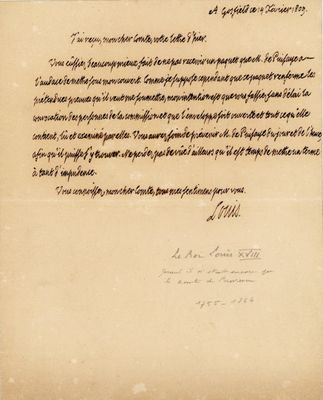 A Gosfield ce 14 Février 1809.
J'ai reçu, mon cher Comte, votre lettre d'hier.
Vous eussiez beaucoup mieux fait de ne pas recevoir un paquet que M. de Puisaye a
l'audace de mettre sous mon couvert. Comme je suppose cependant que ce paquet renferme les
prétendues preuves qu'il veut me soumettre, mon intention est que vous fassiez sans délai la
convocation des personnes de la commission et que l'enveloppe soit ouverte et tout ce qu'elle
contient, lû et examiné par elles. Vous aurez soin de prévenir M. de Puisaye du jour et de l'heure
afin qu'il puisse s'y trouver. Ne perdez pas de vüe d'ailleurs qu'il est temps de mettre un terme
à tant d'impudence.
Vous connoissez, mon cher Comte, tous mes sentimens pour vous.
Louis.
Le Roi Louis XVIII
quand il n'était encore que
le comte de Provence
1755-1824